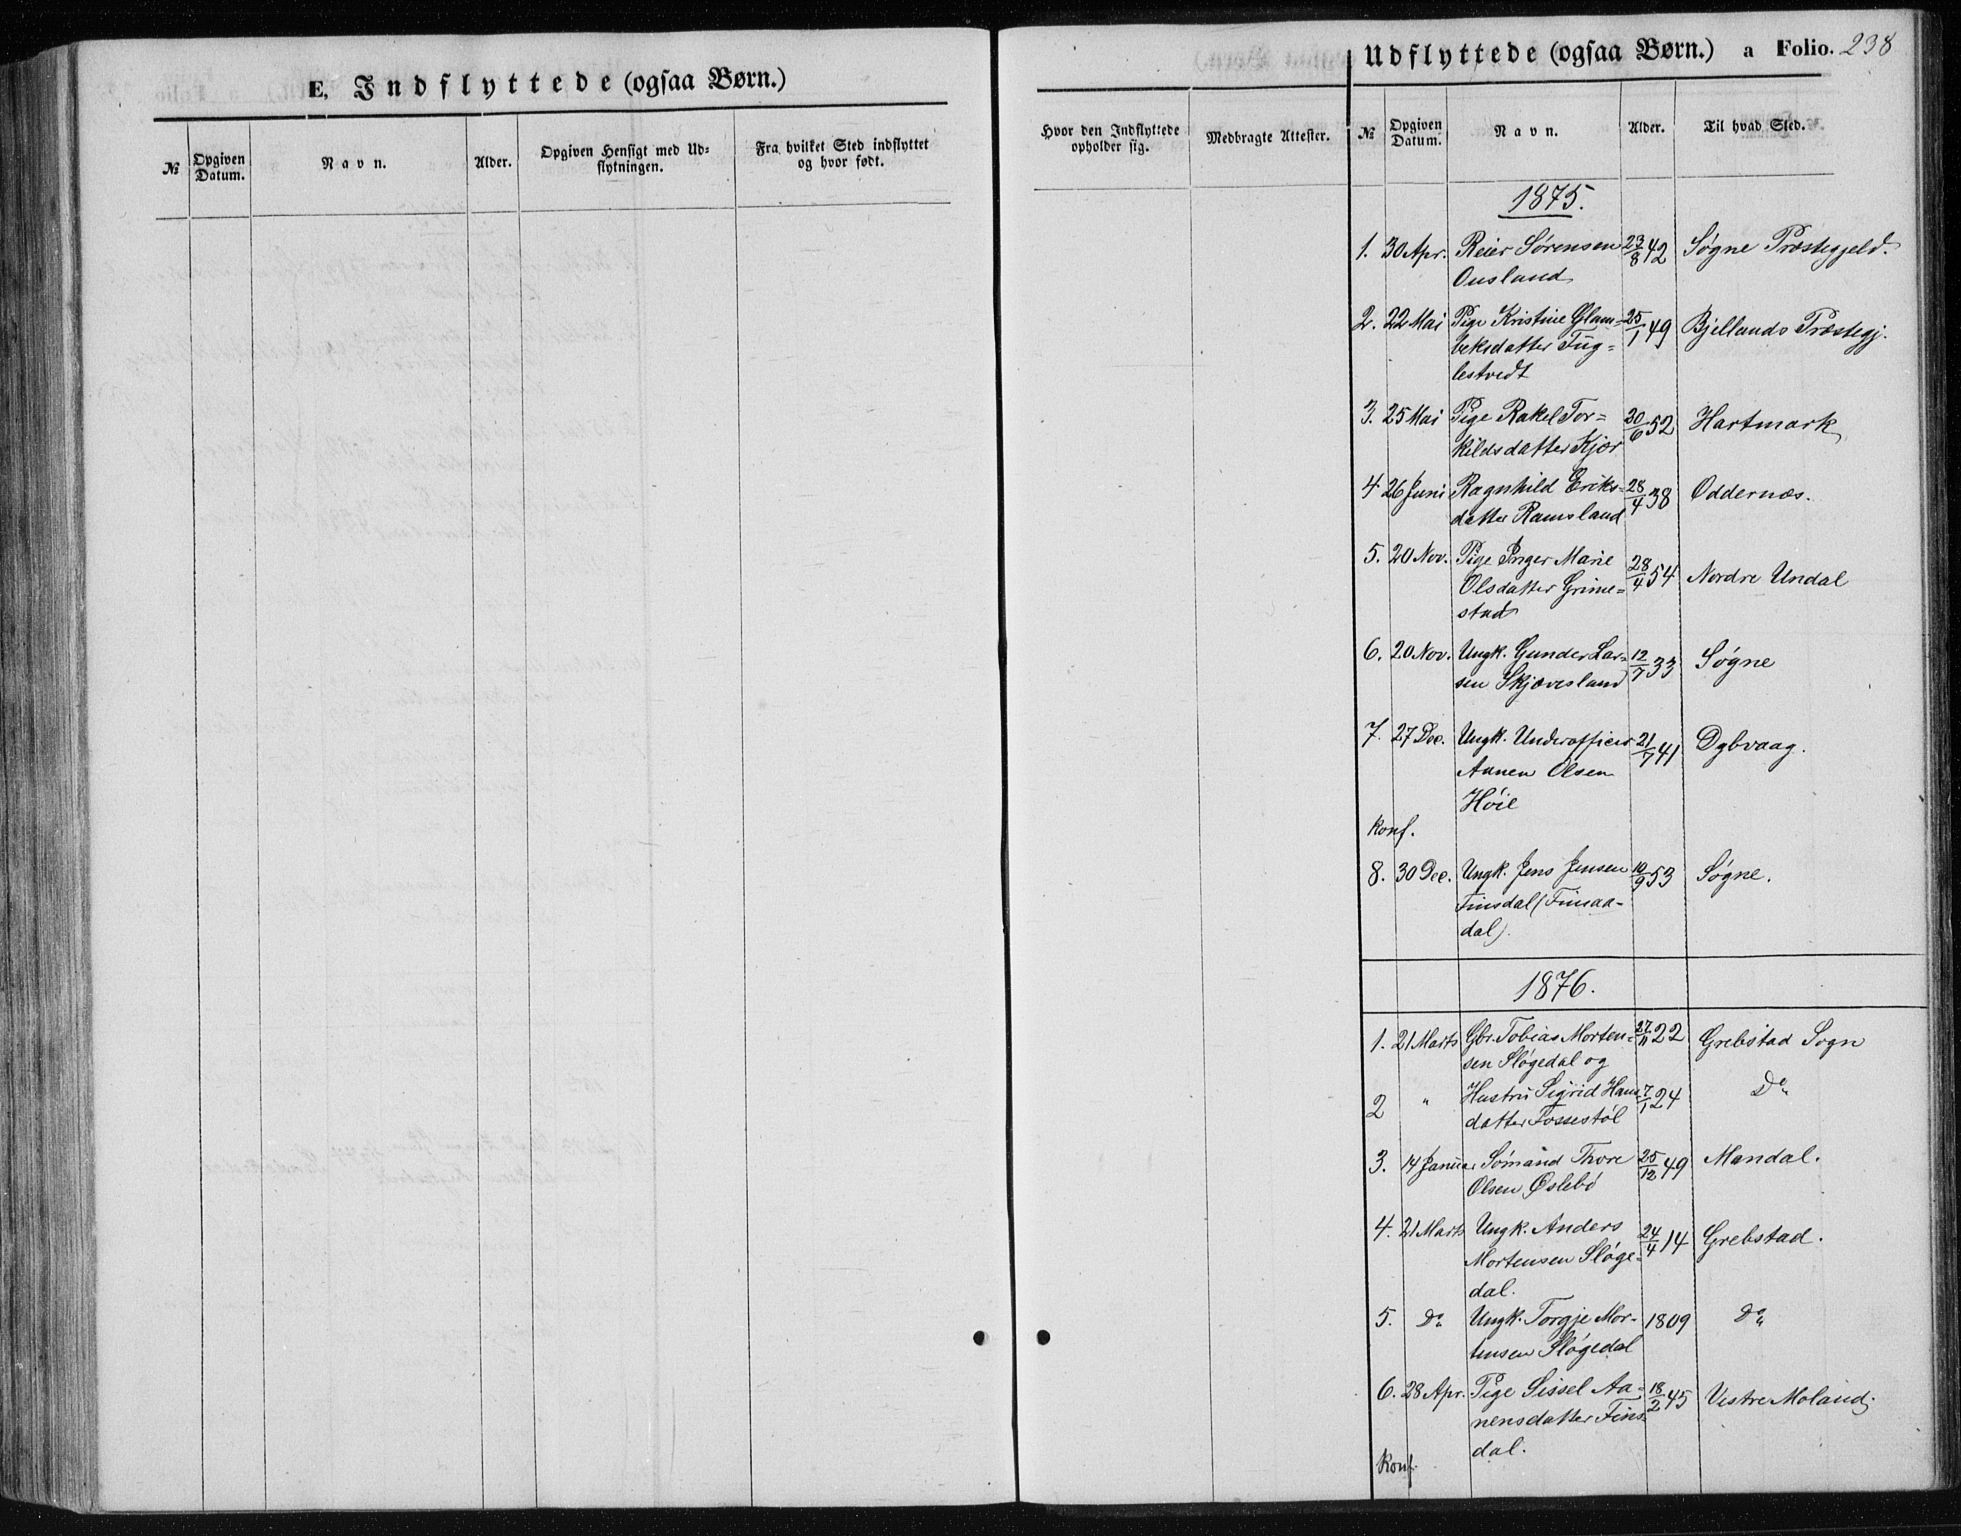 E, Indflyttede (ogsaa Børn.)
№ Opgiven Datum. Navn. Alder. Opgiven Hensigt med Udflytningen. Fra hvilket Sted indflyttet og hvor født.
Hvor den Indflyttede opholder sig. Medbragte Attester.
Udflyttede (ogsaa Børn.) a Folio. 238
№ Opgiven Datum. Navn. Alder. Til hvad Sted.
1875.
1. 30 Apr. Reier Sørensen 23/8 42 Søgne Præstegjeld.
Ousland
2. 22 Mai Pige Kristine Glam= 25/1 49 Bjellands Præstegj.
beksdatter Fug=
lestvedt
3. 25 Mai Pige Rakel Tor= 20/6 52 Hartmark
kildsdatter Kjær
4 26 Juni Ragnhild Eriks= 28/4 38 Oddernæs.
datter Ramsland
5. 20 Nov. Pige Inger Marie 28/4 54 Nordre Undal
Olsdatter Grime=
stad
6. 20 Nov. Ungk. Gunder Lar= 12/7 33 Søgne
sen Skjævesland
7. 27 Dec. Ungk. Underofficer 21/7 41 Dybvaag.
Aanen Olsen
Høie
konf.
8. 30 Dec. Ungk. Jens Jensen 10/9 53 Søgne.
Finsdal (Finsaa-
dal).
1876.
1. 21 Marts Gbr. Tobias Morten= 27/11 22 Grebstad Sogn
sen Sløgedal og
2 " Hustru Sigrid Hans 7/1 24 Do
datter Fossestøl
3. 14 Januar Sømand Thore 25/12 49 Mandal.
Olsen Øslebø
4. 21 Marts Ungk. Anders 24/4 14 Grebstad.
Mortensen Sløge=
dal.
5. Do Ungk. Torgje Mor- 1809 Do
tensen Sløgedal
6. 28 Apr. Pige Sissel Aa= 18/2 45 Vestre Moland.
nensdatter Fins
dal.
konf.